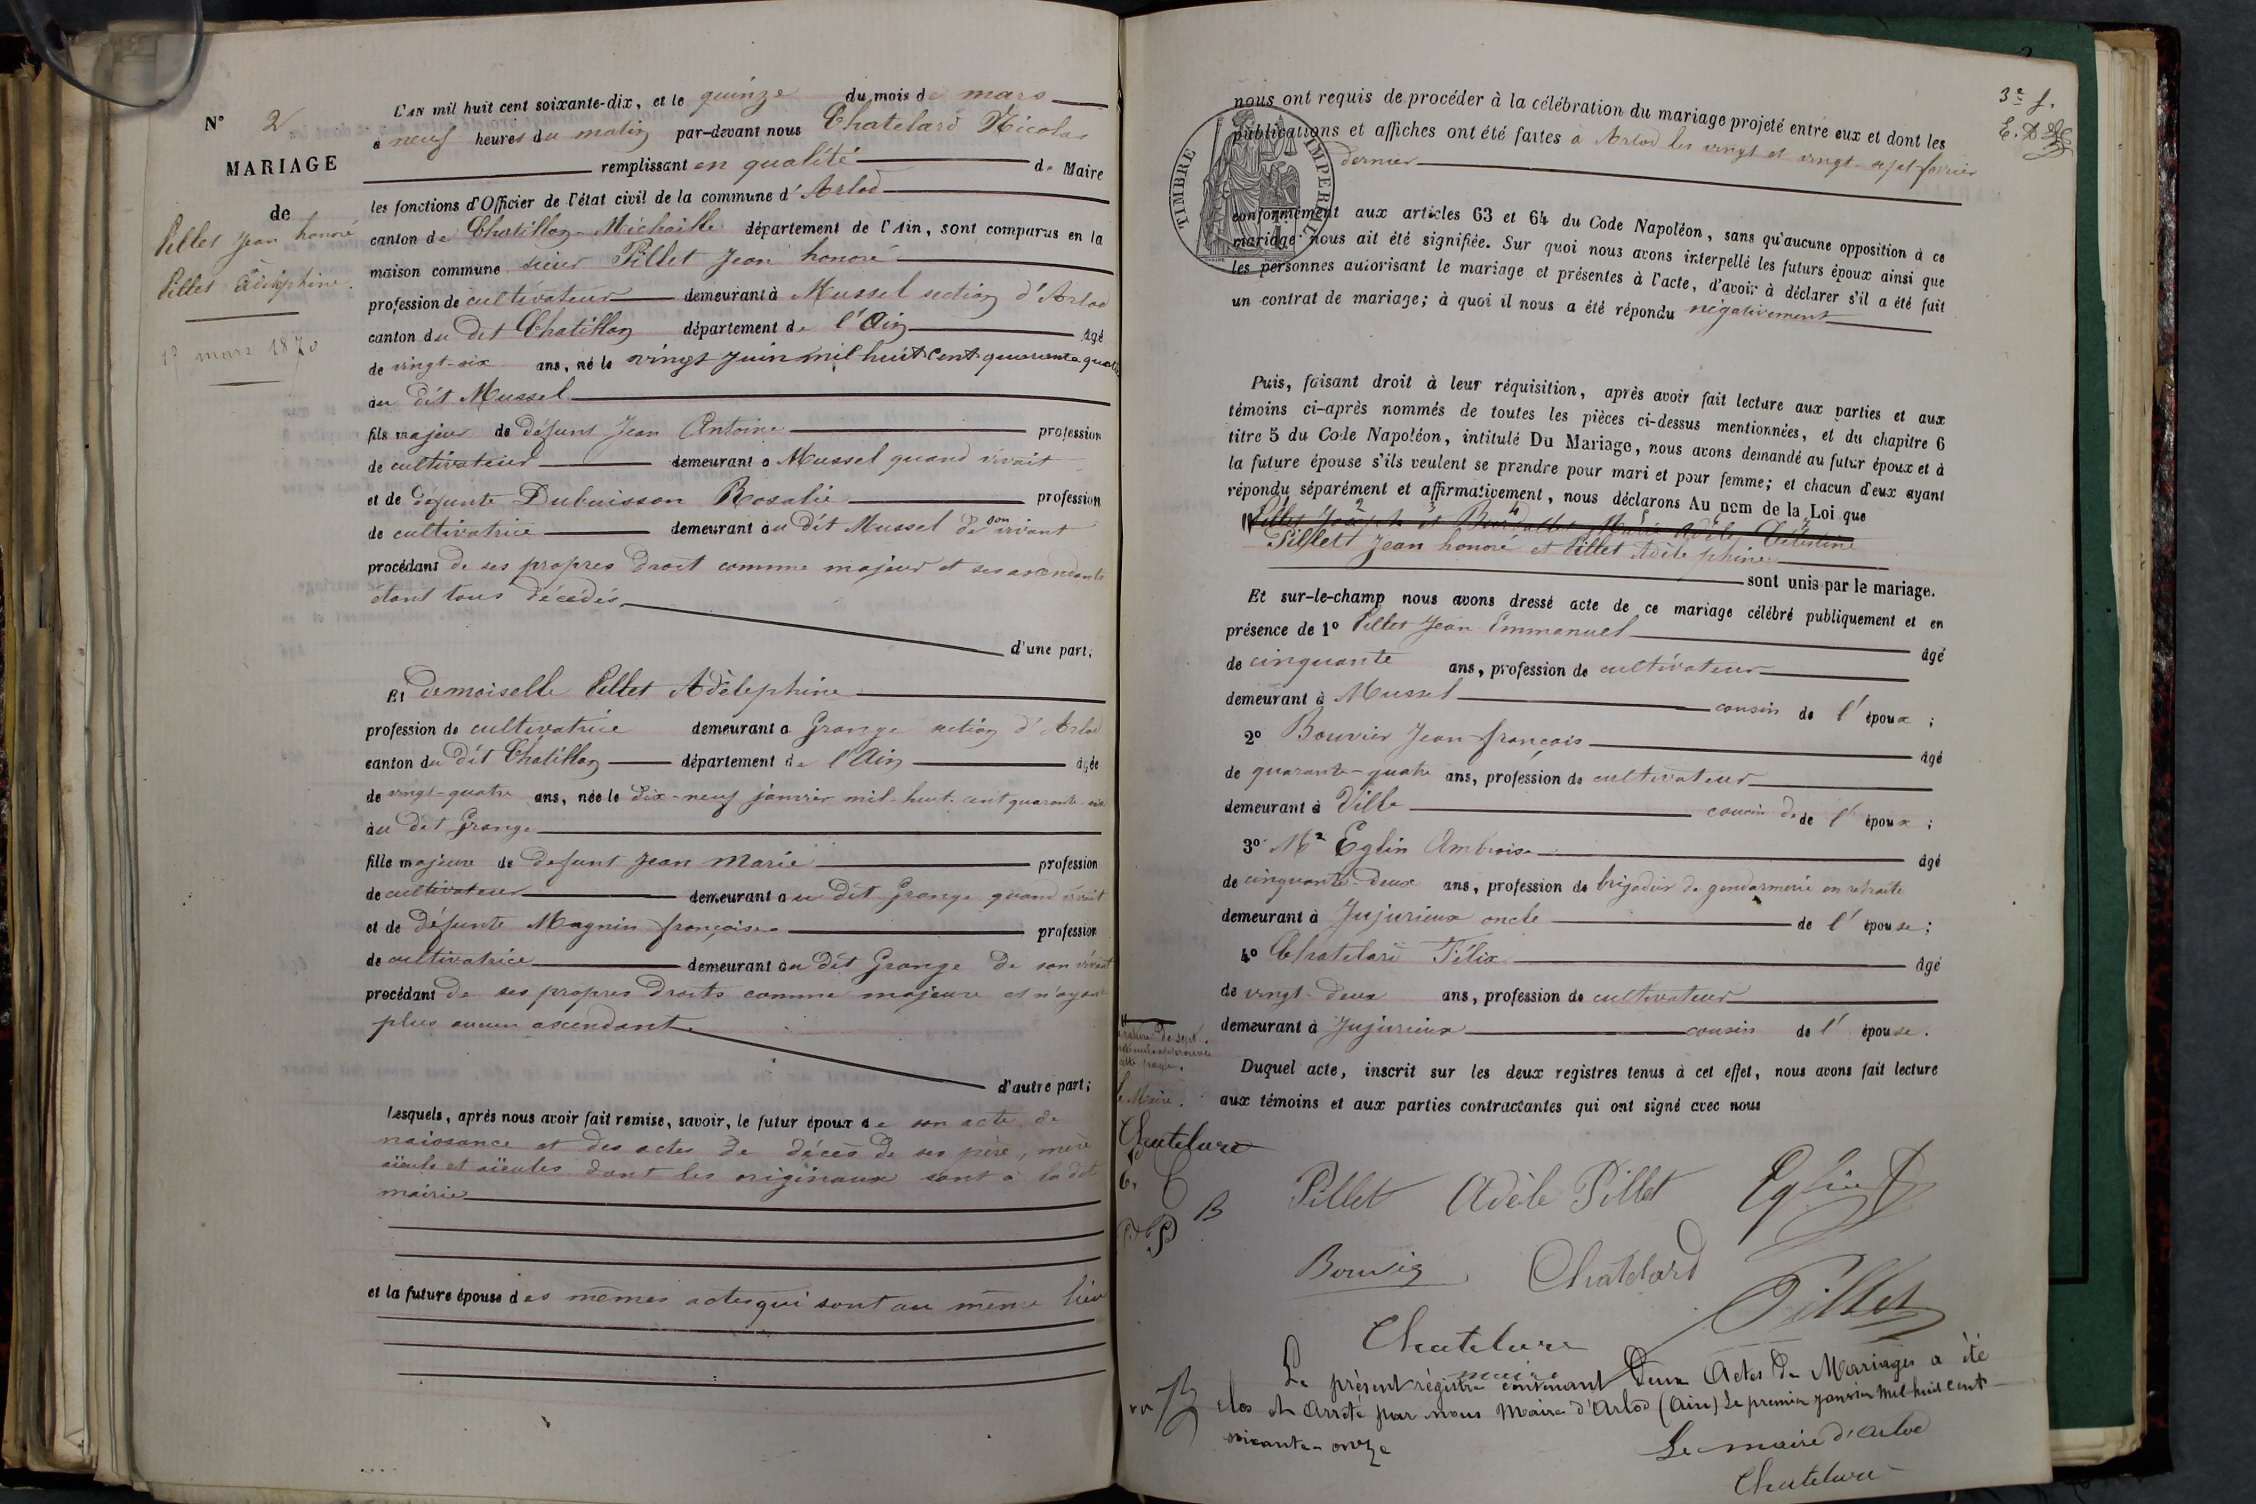 N° 2
MARIAGE
de
Pillet Jean honoré
Pillet Adèlephine.
15 mars 1870
L'AN mil huit cent soixante-dix, et le quinze du mois de mars
à neuf heures du matin par-devant nous Chatelard Nicolas
remplissant en qualité de Maire
les fonctions d'Officier de l'état civil de la commune d'Arlod
canton de Chatillon-Michaille département de l'Ain, sont comparus en la
maison commune sieur Pillet Jean honoré
profession de cultivateur demeurant à Mussel section d'Arlod
canton du dit Chatillon département de l'Ain âgé
de vingt-six ans, né le vingt Juin mil huit cent quarante quatre
au dit Mussel
fils majeur de défunt Jean Antoine profession
de cultivateur demeurant à Mussel quand vivait
et de défunte Dubuisson Rosalie profession
de cultivatrice demeurant au dit Mussel de son vivant
procédant de ses propres droit comme majeur et ses ascendants
étant tous décédés
d'une part;
Et Demoiselle Pillet Adèlephine
profession de cultivatrice demeurant à Grange section d'Arlod
canton du dit Chatillon département de l'Ain âgée
de vingt-quatre ans, née le dix-neuf janvier mil-huit-cent quarante-six
au dit Grange
fille majeure de défunt Jean Marie profession
de cultivateur demeurant au dit Grange quand vivait
et de défunte Magnin françoise profession
de cultivatrice demeurant au dit Grange de son vivant
procédant de ses propres droits comme majeure et n'ayant
plus aucun ascendant.
d'autre part;
Lesquels, après nous avoir fait remise, savoir, le futur époux de son acte de
naissance et des actes de décès de ses père, mère
aïeuls et aïeules dont les originaux sont à la dite
mairie
et la future épouse des mêmes actes qui sont au même lieu
3e f.
TIMBRE IMPERIAL
nous ont requis de procéder à la célébration du mariage projeté entre eux et dont les
publications et affiches ont été faites à Arlod les vingt et vingt-sept février
dernier
conformément aux articles 63 et 64 du Code Napoléon, sans qu'aucune opposition à ce
mariage nous ait été signifiée. Sur quoi nous avons interpellé les futurs époux ainsi que
les personnes autorisant le mariage et présentes à l'acte, d'avoir à déclarer s'il a été fait
un contrat de mariage; à quoi il nous a été répondu négativement
Puis, faisant droit à leur réquisition, après avoir fait lecture aux parties et aux
témoins ci-après nommés de toutes les pièces ci-dessus mentionnées, et du chapitre 6
titre 5 du Code Napoléon, intitulé Du Mariage, nous avons demandé au futur époux et à
la future épouse s'ils veulent se prendre pour mari et pour femme; et chacun d'eux ayant
répondu séparément et affirmativement, nous déclarons Au nom de la Loi que
Pillet Joseph et Marie Adèle Célestine
Pillet Jean honoré et Pillet Adèlephine
sont unis par le mariage.
Et sur-le-champ nous avons dressé acte de ce mariage célébré publiquement et en
présence de 1° Pillet Jean Emmanuel âgé
de cinquante ans, profession de cultivateur
demeurant à Mussel cousin de l'époux;
2° Bouvier Jean-françois âgé
de quarante-quatre ans, profession de cultivateur
demeurant à Ville cousin de de l'époux;
3° Mr Eglin Ambroise âgé
de cinquante-deux ans, profession de brigadier de gendarmerie en retraite
demeurant à Jujurieux oncle de l'épouse;
4° Chatelard Félix âgé
de vingt-deux ans, profession de cultivateur
demeurant à Jujurieux cousin de l'épouse.
Duquel acte, inscrit sur les deux registres tenus à cet effet, nous avons fait lecture
aux témoins et aux parties contractantes qui ont signé avec nous
le Maire.
Chatelard
Pillet Adèle Pillet Eglin
Bouvier Chatelard Pillet
Chatelard
maire
Le présent régistre contenant Deux Actes de Mariages a été
clos et arrêté par nous Maire d'Arlod (Ain) Le premier janvier mil huit cent
soixante-onze
Le maire d'Arlod
Chatelard